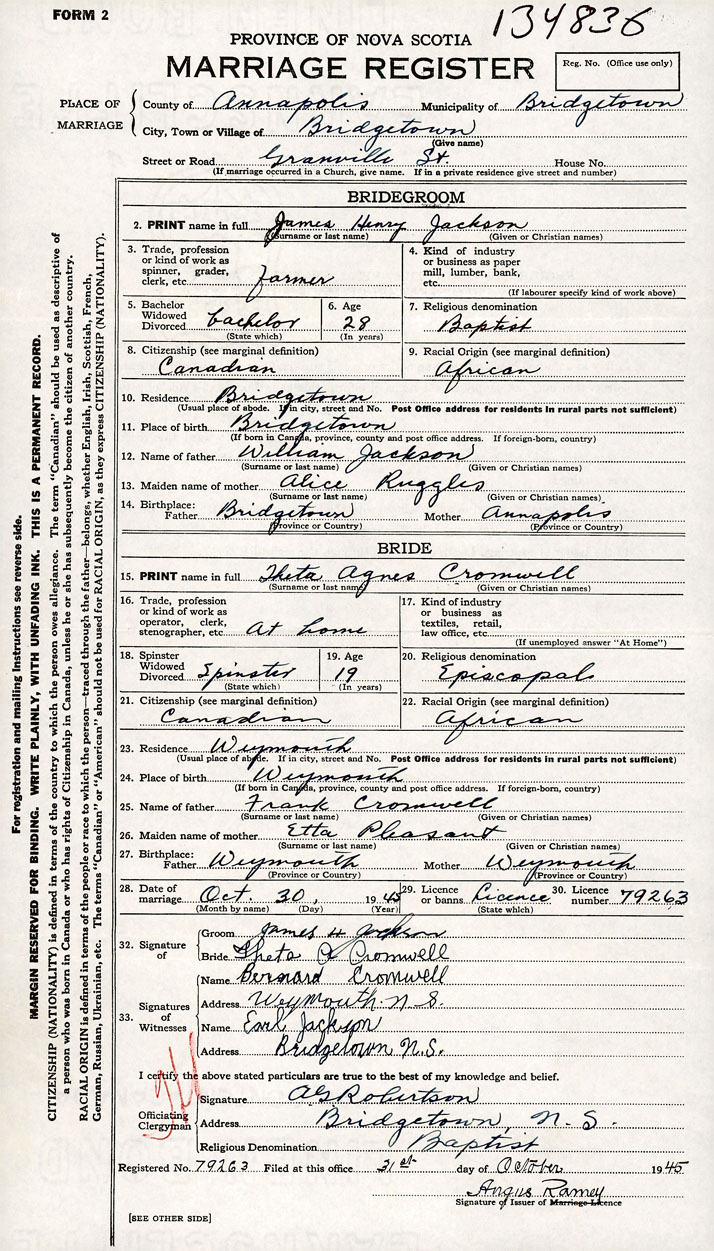 FORM 2
134836
PROVINCE OF NOVA SCOTIA
MARRIAGE REGISTER
Reg. No. (Office use only)
PLACE OF MARRIAGE
County of Annapolis Municipality of Bridgetown
City, Town or Village of Bridgetown
(Give name)
Street or Road Granville St. House No.
(If marriage occurred in a Church, give name. If in a private residence give street and number)
BRIDEGROOM
2. PRINT name in full James Henry Jackson
(Surname or last name) (Given or Christian names)
3. Trade, profession or kind of work as spinner, grader, clerk, etc. farmer
4. Kind of industry or business as paper mill, lumber, bank, etc.
(If labourer specify kind of work above)
5. Bachelor Widowed Divorced bachelor
(State which)
6. Age 28
(In years)
7. Religious denomination
Baptist
8. Citizenship (see marginal definition)
Canadian
9. Racial Origin (see marginal definition)
African
10. Residence Bridgetown
(Usual place of abode. If in city, street and No. Post Office address for residents in rural parts not sufficient)
11. Place of birth Bridgetown
(If born in Canada, province, county and post office address. If foreign-born, country)
12. Name of father William Jackson
(Surname or last name) (Given or Christian names)
13. Maiden name of mother Alice Ruggles
(Surname or last name) (Given or Christian names)
14. Birthplace: Father Bridgetown Mother Annapolis
(Province or Country) (Province or Country)
BRIDE
15. PRINT name in full Theta Agnes Cromwell
(Surname or last name) (Given or Christian names)
16. Trade, profession or kind of work as operator, clerk, stenographer, etc. At home
17. Kind of industry or business as textiles, retail, law office, etc.
(If unemployed answer "At Home")
18. Spinster Widowed Divorced Spinster
(State which)
19. Age 19
(In years)
20. Religious denomination
Episcopal
21. Citizenship (see marginal definition)
Canadian
22. Racial Origin (see marginal definition)
African
23. Residence Weymouth
(Usual place of abode. If in city, street and No. Post Office address for residents in rural parts not sufficient)
24. Place of birth Weymouth
(If born in Canada, province, county and post office address. If foreign-born, country)
25. Name of father Frank Cromwell
(Surname or last name) (Given or Christian names)
26. Maiden name of mother Etta Pleasant
(Surname or last name) (Given or Christian names)
27. Birthplace: Father Weymouth Mother Weymouth
(Province or Country) (Province or Country)
28. Date of marriage Oct. 30, 1945
(Month by name) (Day) (Year)
29. Licence or banns Licence
(State which)
30. Licence number 79263
32. Signature of
Groom James H Jackson
Bride Theta A Cromwell
33. Signatures of Witnesses
Name Bernard Cromwell
Address Weymouth. N. S.
Name Earl Jackson
Address Bridgetown N.S.
I certify the above stated particulars are true to the best of my knowledge and belief.
Officiating Clergyman
Signature AG Robertson
Address Bridgetown, N. S.
Religious Denomination Baptist
Registered No. 79263 Filed at this office 31st day of October 1945
Angus Ramey
Signature of Issuer of Marriage Licence
[SEE OTHER SIDE]
For registration and mailing instructions see reverse side.
MARGIN RESERVED FOR BINDING. WRITE PLAINLY, WITH UNFADING INK. THIS IS A PERMANENT RECORD.
CITIZENSHIP (NATIONALITY) is defined in terms of the country to which the person owes allegiance. The term "Canadian" should be used as descriptive of
a person who was born in Canada or who has rights of Citizenship in Canada, unless he or she has subsequently become the citizen of another country.
RACIAL ORIGIN is defined in terms of the people or race to which the person—traced through the father—belongs, whether English, Irish, Scottish, French,
German, Russian, Ukrainian, etc. The terms "Canadian" or "American" should not be used for RACIAL ORIGIN, as they express CITIZENSHIP (NATIONALITY).